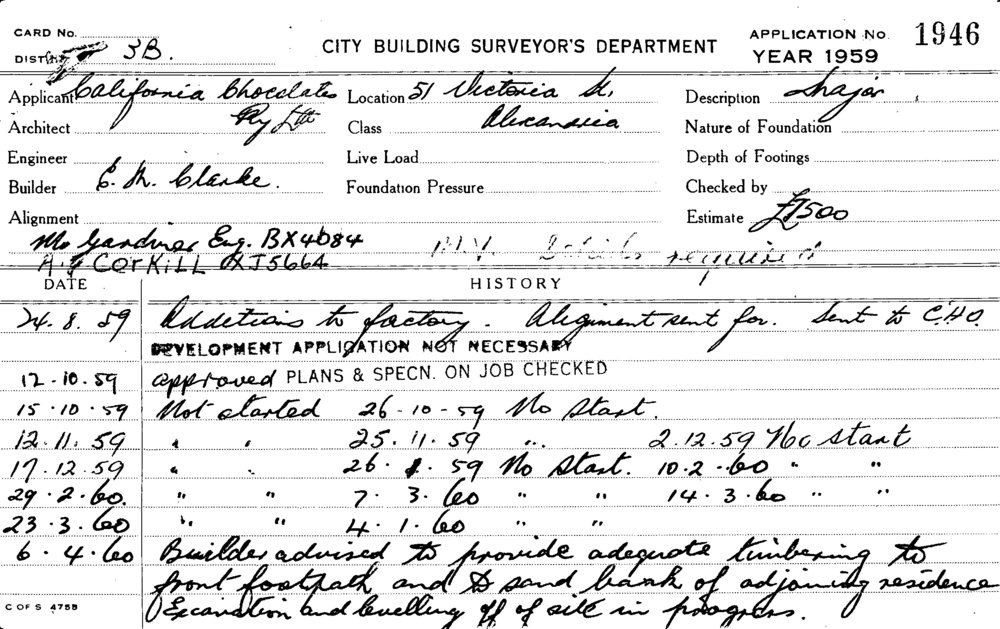 CARD No.
CITY BUILDING SURVEYOR'S DEPARTMENT
APPLICATION No. 1946
DISTRICT 3B.
YEAR 1959
Applicant California Chocolates Location 51 Victoria St. Description Major
Architect Pty Ltd Class Alexandria Nature of Foundation
Engineer Live Load Depth of Footings
Builder E. M. Clarke. Foundation Pressure Checked by
Alignment Estimate £7500
Mr Gardiner Eng. BX4684
required
CORKILL XJ5664
DATE HISTORY
24.8.59 Additions to factory. Alignment sent for. Sent to C.H.O.
DEVELOPMENT APPLICATION NOT NECESSARY
12.10.59 approved PLANS & SPECN. ON JOB CHECKED
15.10.59 Not started 26-10-59 No Start.
12.11.59 " " 25.11.59 " 2.12.59 No start
17.12.59 " " 26. .59 No Start. 10.2.60 " "
29.2.60. " " 7.3.60 " " 14.3.60 " "
23.3.60 " " 4.1.60 " "
6.4.60 Builder advised to provide adequate timbering to
front footpath and sand bank of adjoining residence
Excavation and levelling off of site in progress.
C OF S 475B